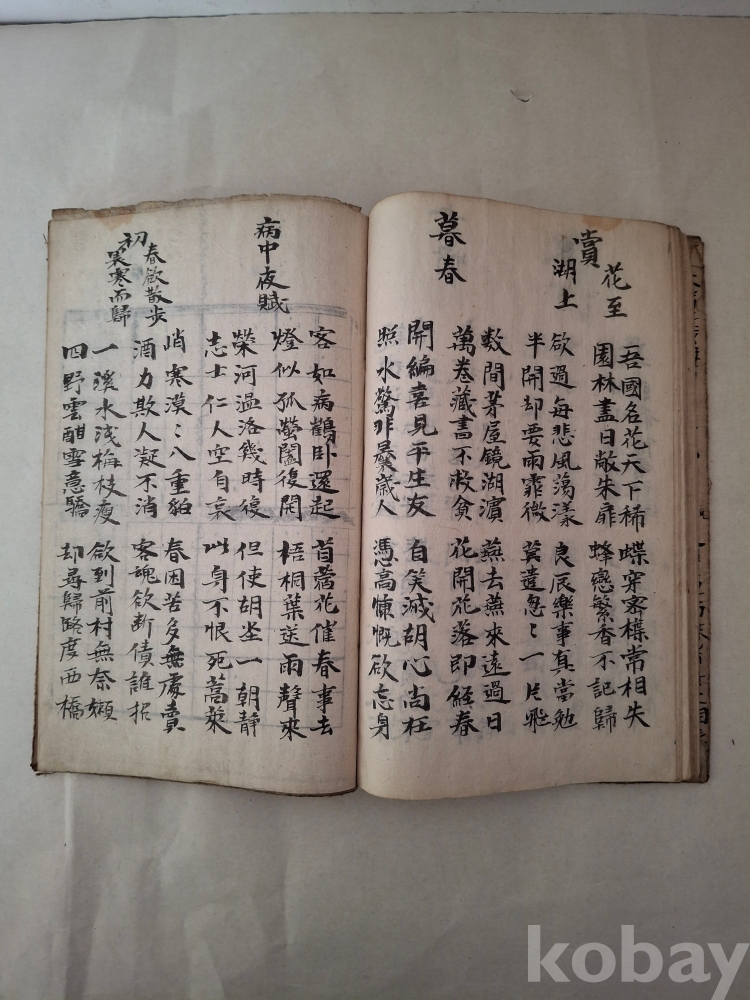 賞花至湖上
吾國名花天下稀 蝶穿密楪常相失
園林盡日敞朱扉 蜂戀繁香不記歸
欲過每悲風蕩漾 良辰樂事真當勉
半開却要雨霏微 莫遣忽〻一片飛
暮春
數間茅屋鏡湖濱 燕去燕來遠過日
萬卷藏書不救貧 花開花落即經春
開編喜見平生友 自笑滅胡心尚在
照水驚非曩歲人 憑高慷慨欲忘身
病中夜賦
客如病鶴臥還起 苜蓿花催春事去
燈似孤螢闔復開 梧桐葉送雨聲來
榮河溫洛幾時復 但使胡坐一朝靜
志士仁人空自哀 此身不恨死蒿萊
初春欲散步畏寒而歸
峭寒漠〻八重貂 春困苦多無處賣
酒力欺人凝不消 客魂欲斷倩誰招
一溪水淺梅枝瘦 欲到前村無奈嬾
四野雲酣雪意驕 却尋歸路度西橋
kobay